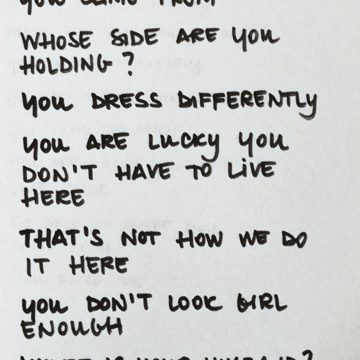 you CAME FROM
WHOSE SIDE ARE you
HOLDING?
you DRESS DIFFERENTLy
you ARE LUCKy you
DON'T HAVE TO LIVE
HERE
THAT'S NOT HOW WE DO
IT HERE
you DON'T LOOK GIRL
ENOUGH
WHAT IS YOUR